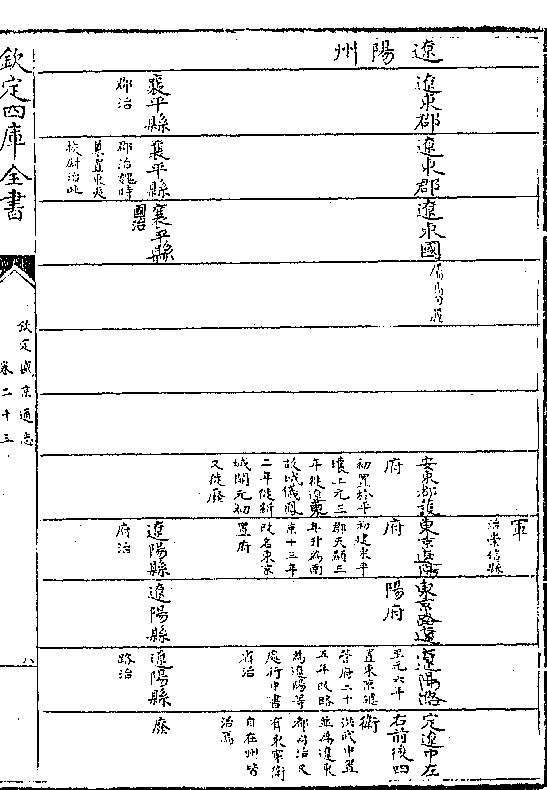 軍
治崇信縣
遼陽州
遼東郡
遼東郡
遼東國
安東都護
府
初置於平
壤上元三
年徙遼東
故城儀鳳
二年徙新
城開元初
又徙廢
東京遼陽
府
初建東平
郡天顯三
年升為南
京十三年
改名東京
置府
東京路遼
陽府
遼陽路
至元六年
置東京總
管府二十
五年改路
為遼陽等
處行中書
省治
定遼中左
右前後四
衛
洪武中置
並為遼東
都司治又
有東寧衛
自在州皆
治焉
襄平縣
郡治
襄平縣
郡治魏時
東夷
校尉治此
襄平縣
國治
遼陽縣
府治
遼陽縣
遼陽縣
路治
廢
欽定四庫全書
欽定盛京通志
卷二十三
八